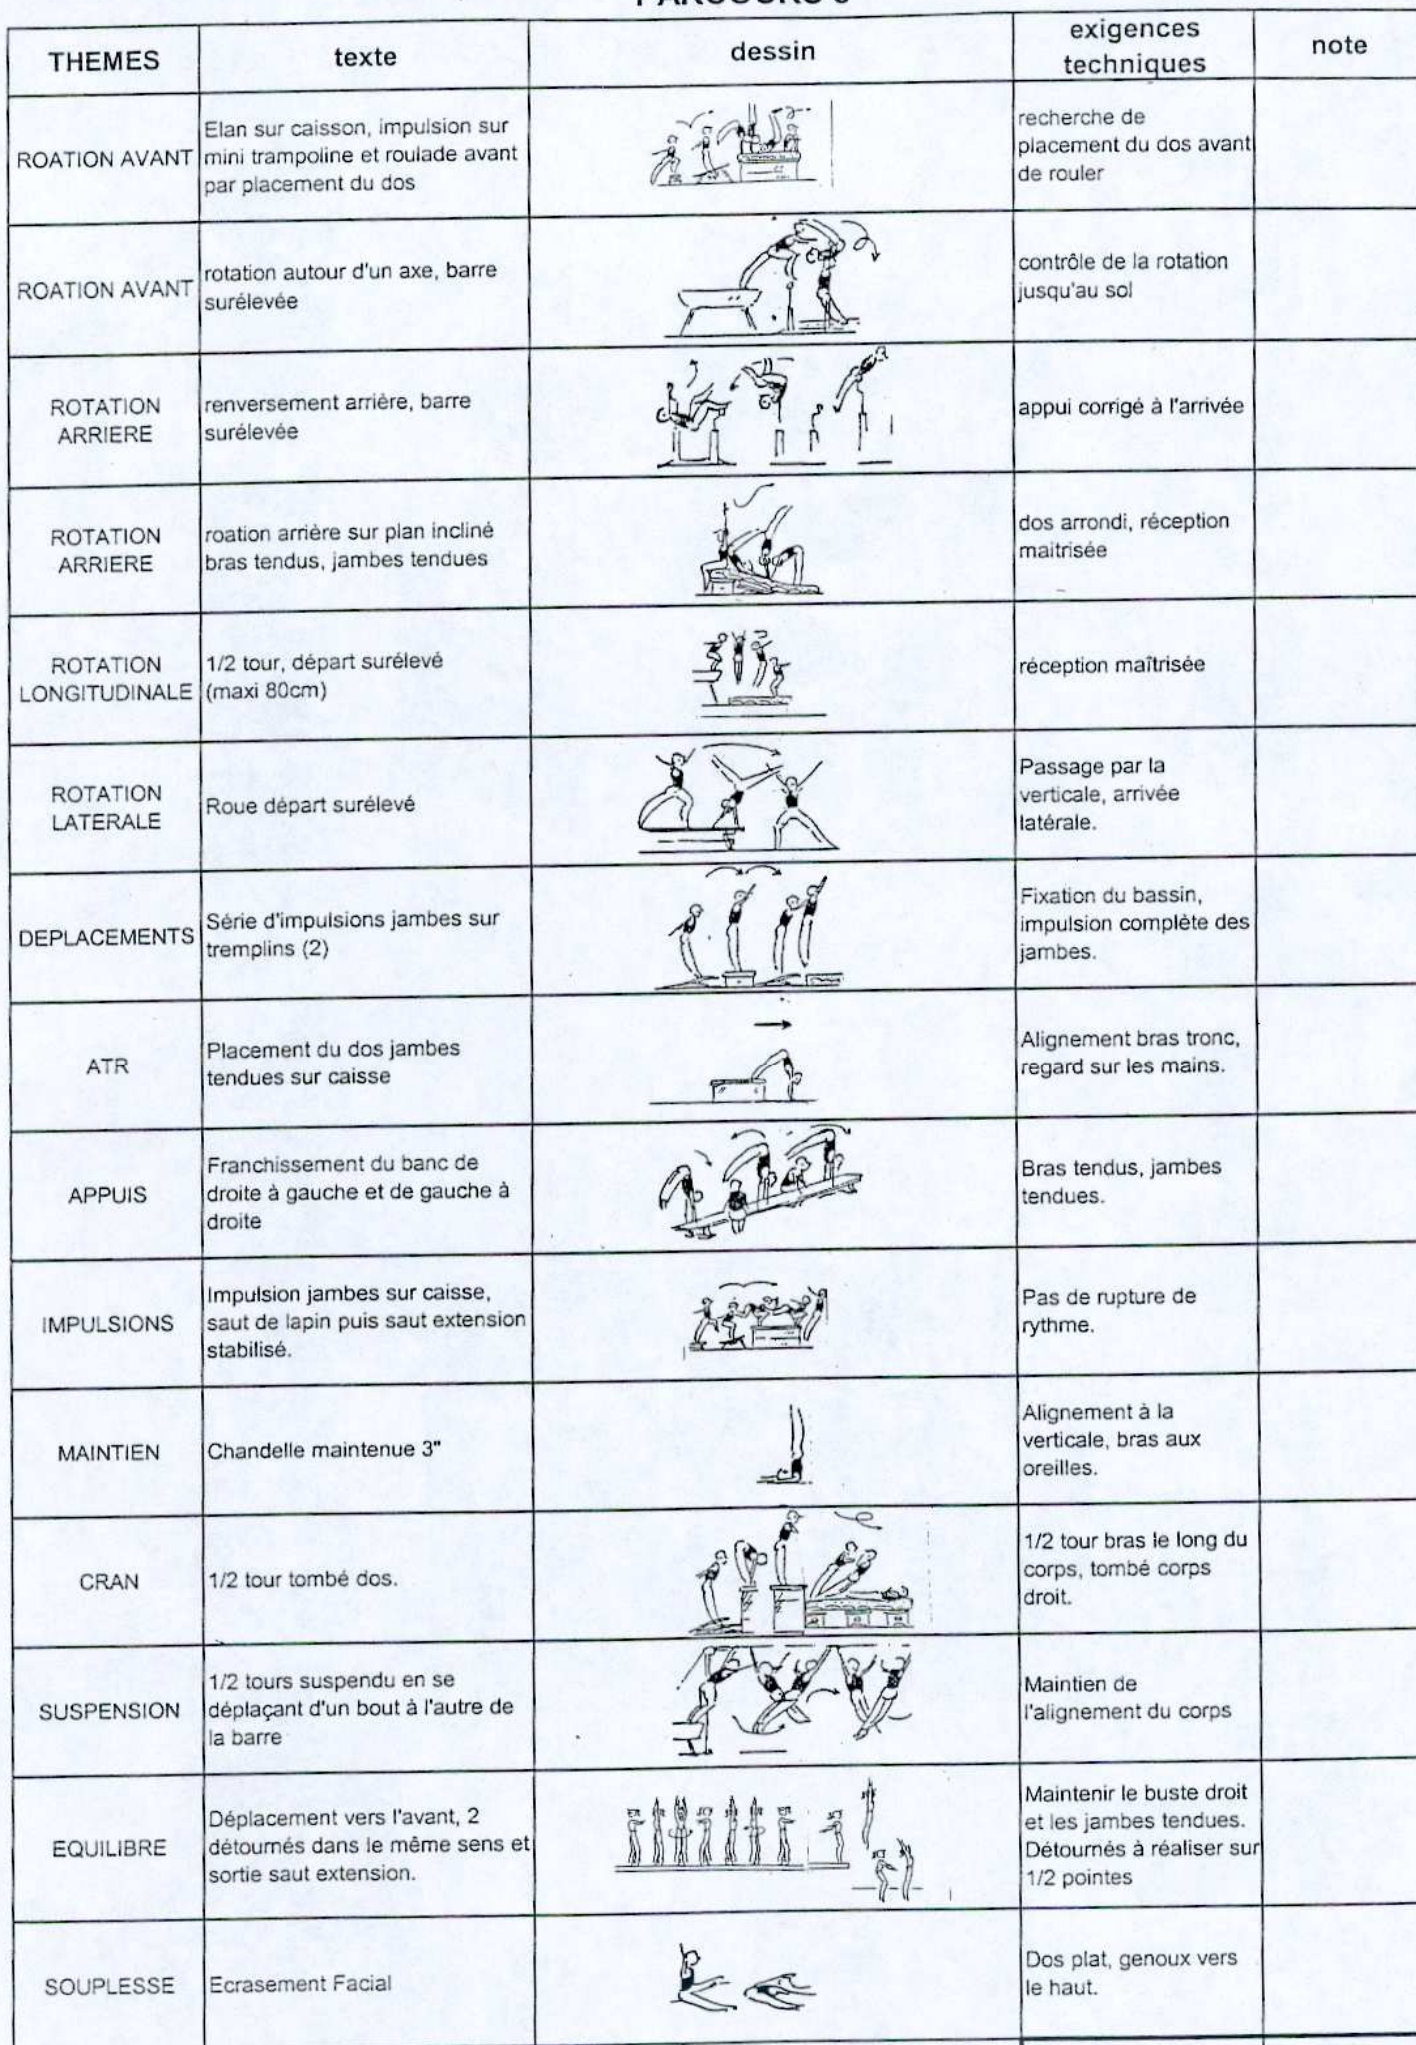 THEMES
texte
dessin
exigences
techniques
note
ROATION AVANT
Elan sur caisson, impulsion sur
mini trampoline et roulade avant
par placement du dos
recherche de
placement du dos avant
de rouler
ROATION AVANT
rotation autour d'un axe, barre
surélevée
contrôle de la rotation
jusqu'au sol
ROTATION
ARRIERE
renversement arrière, barre
surélevée
appui corrigé à l'arrivée
ROTATION
ARRIERE
roation arrière sur plan incliné
bras tendus, jambes tendues
dos arrondi, réception
maitrisée
ROTATION
LONGITUDINALE
1/2 tour, départ surélevé
(maxi 80cm)
réception maîtrisée
ROTATION
LATERALE
Roue départ surélevé
Passage par la
verticale, arrivée
latérale.
DEPLACEMENTS
Série d'impulsions jambes sur
tremplins (2)
Fixation du bassin,
impulsion complète des
jambes.
ATR
Placement du dos jambes
tendues sur caisse
Alignement bras tronc,
regard sur les mains.
APPUIS
Franchissement du banc de
droite à gauche et de gauche à
droite
Bras tendus, jambes
tendues.
IMPULSIONS
Impulsion jambes sur caisse,
saut de lapin puis saut extension
stabilisé.
Pas de rupture de
rythme.
MAINTIEN
Chandelle maintenue 3"
Alignement à la
verticale, bras aux
oreilles.
CRAN
1/2 tour tombé dos.
1/2 tour bras le long du
corps, tombé corps
droit.
SUSPENSION
1/2 tours suspendu en se
déplaçant d'un bout à l'autre de
la barre
Maintien de
l'alignement du corps
EQUILIBRE
Déplacement vers l'avant, 2
détournés dans le même sens et
sortie saut extension.
Maintenir le buste droit
et les jambes tendues.
Détournés à réaliser sur
1/2 pointes
SOUPLESSE
Ecrasement Facial
Dos plat, genoux vers
le haut.